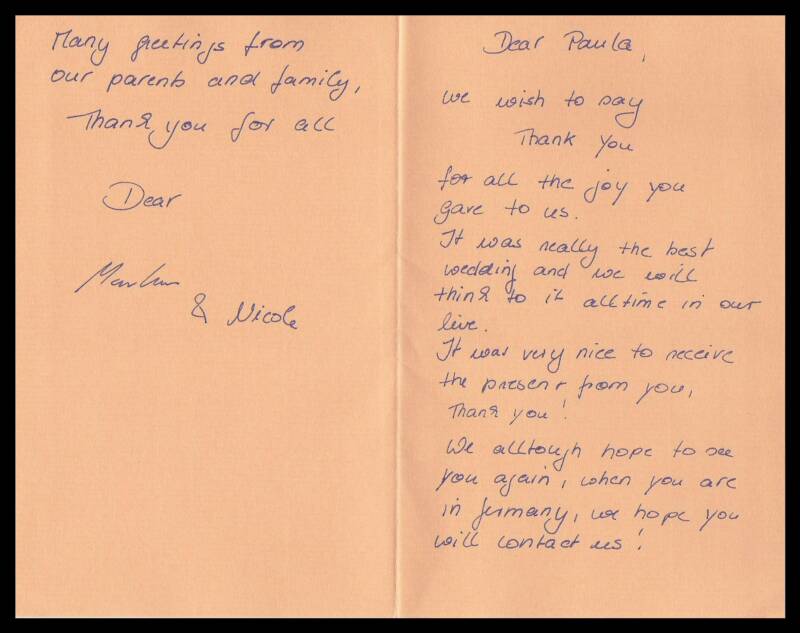 Dear Paula,
we wish to say
Thank you
for all the joy you
gave to us.
It was really the best
wedding and we will
think to it alltime in our
live.
It was very nice to receive
the present from you,
Thank you!
We alltough hope to see
you again, when you are
in Germany, we hope you
will contact us!
Many greetings from
our parents and family,
Thank you for all
Dear
Markus
& Nicole